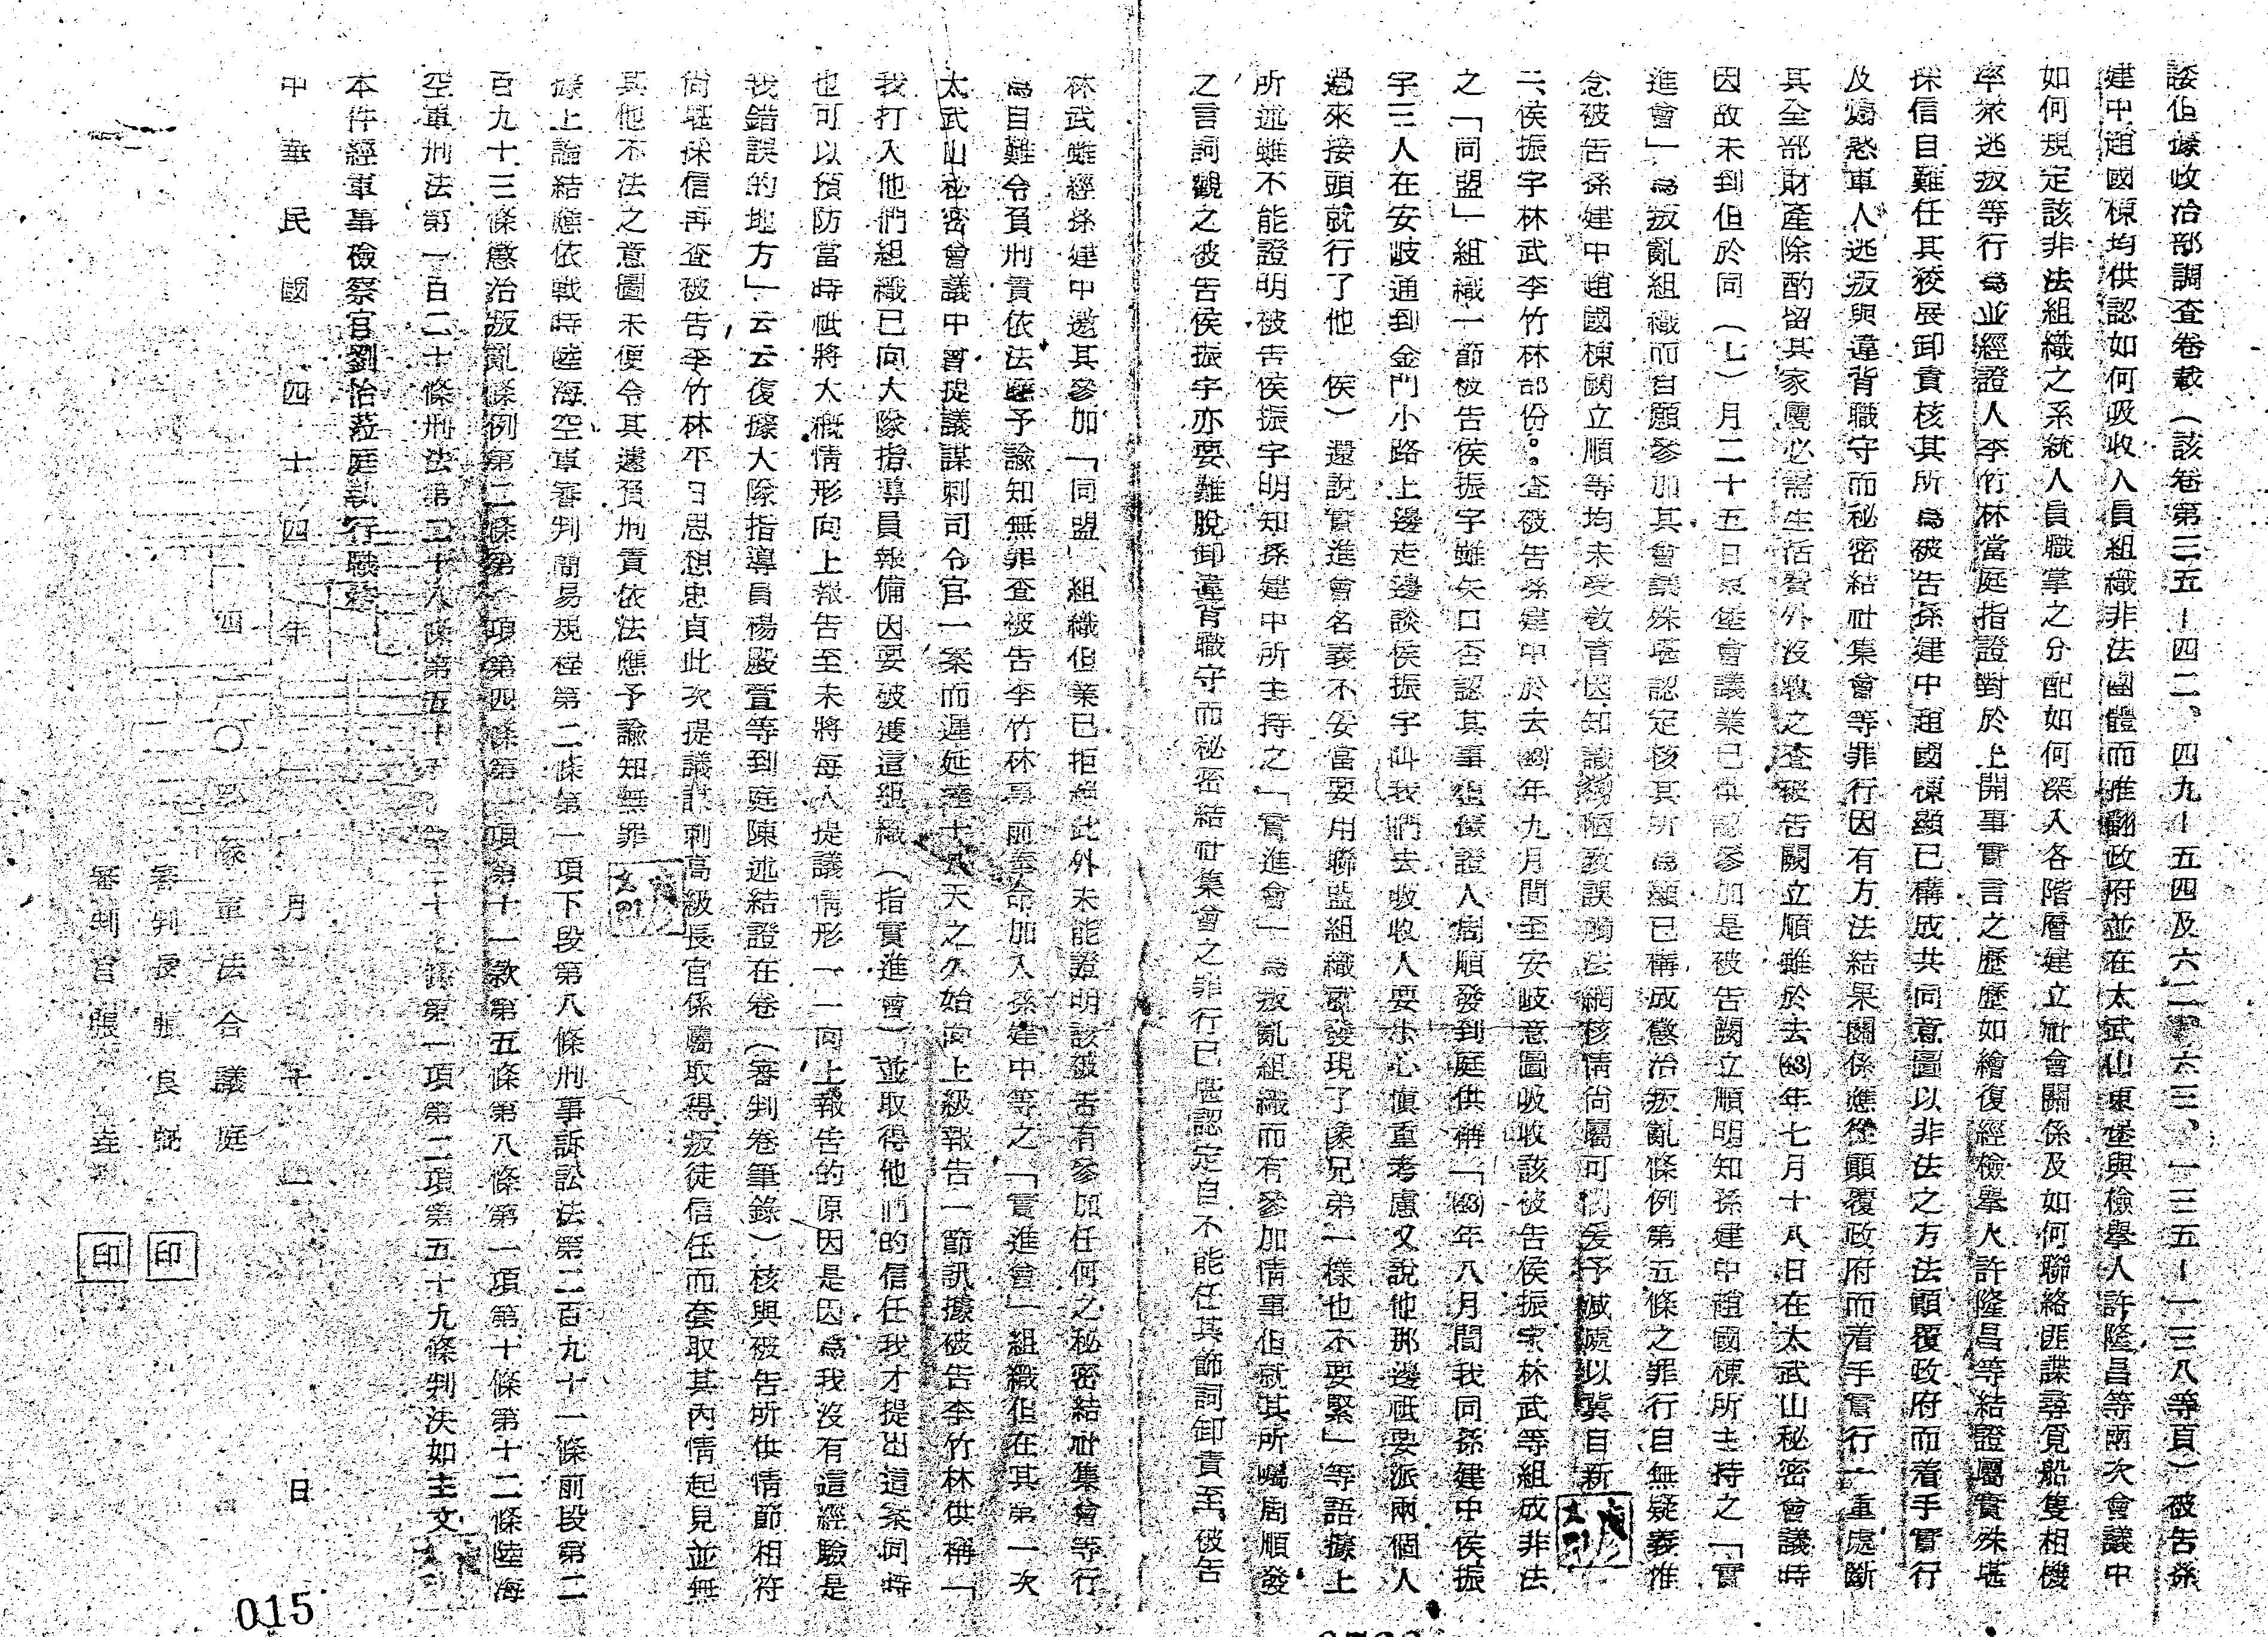 諉但據政治部調查卷載（該卷第三五－四二、四九－五四及六二、六三、一三五－一三八等頁）被告孫
建中趙國棟均供認如何吸收人員組織非法團體而推翻政府並在太武山東堡與檢舉人許隆昌等兩次會議中
如何規定該非法組織之系統人員職掌之分配如何深入各階層建立社會關係及如何聯絡匪諜尋覓船隻相機
率眾逃叛等行為並經證人李竹林當庭指證對於上開事實言之歷歷如繪復經檢舉人許隆昌等結證屬實殊堪
採信自難任其狡展卸責核其所為被告孫建中趙國棟顯已構成共同意圖以非法之方法顛覆政府而着手實行
及煽惑軍人逃叛與違背職守而秘密結社集會等罪行因有方法結果關係應從顛覆政府而着手實行一重處斷
其全部財產除酌留其家屬必需生活費外沒收之查被告闕立順雖於去(43)年七月十八日在太武山秘密會議時
因故未到但於同（七）月二十五日東堡會議業已供認參加是被告闕立順明知孫建中趙國棟所主持之「實
進會」為叛亂組織而自願參加其會議殊堪認定核其所為顯已構成懲治叛亂條例第五條之罪行自無疑義惟
念被告孫建中趙國棟闕立順等均未受教育因知識淺陋致誤觸法網核情尚屬可憫爰予減處以冀自新
二、侯振宇林武李竹林部份。查被告孫建中於去(43)年九月間至安岐意圖吸收該被告侯振宇林武等組成非法
之「同盟」組織一節被告侯振宇雖矢口否認其事但據證人周順發到庭供稱「(43)年八月間我同孫建中侯振
宇三人在安岐通到金門小路上邊走邊談侯振宇叫我們去吸收人要小心慎重考慮又說他那邊祗要派兩個人
過來接頭就行了他（侯）還說實進會名義不妥當要用聯盟組織就發現了像兄弟一樣也不要緊」等語據上
所述雖不能證明被告侯振宇明知孫建中所主持之「實進會」為叛亂組織而有參加情事但就其所囑周順發
之言詞觀之被告侯振宇亦要難脫卸違背職守而秘密結社集會之罪行已堪認定自不能任其飾詞卸責至被告
林武雖經孫建中邀其參加「同盟」組織但業已拒絕此外未能證明該被告有參加任何之秘密結社集會等行
為自難令負刑責依法應予諭知無罪查被告李竹林事前奉命加入孫建中等之「實進會」組織但在其第一次
太武山秘密會議中曾提議謀刺司令官一案而遲延達十八天之久始向上級報告一節訊據被告李竹林供稱「
我打入他們組織已向大隊指導員報備因要破獲這組織（指實進會）並取得他們的信任我才提出這案同時
也可以預防當時祗將大概情形向上報告至未將每人提議情形一一向上報告的原因是因為我沒有這經驗是
我錯誤的地方」云云復據大隊指導員楊殿萱等到庭陳述結證在卷（審判卷筆錄）核與被告所供情節相符
尚堪採信再查被告李竹林平日思想忠貞此次提議計刺高級長官係騙取得叛徒信任而套取其內情起見並無
其他不法之意圖未便令其遽負刑責依法應予諭知無罪
據上論結應依戰時陸海空軍審判簡易規程第二條第一項下段第八條刑事訴訟法第二百九十一條前段第二
百九十三條懲治叛亂條例第二條第一項第四條第一項第十一款第五條第八條第一項第十條第十二條陸海
空軍刑法第一百二十條刑法第二十八條第五十條第一項第二項第五十九條判決如主文
本件經軍事檢察官劉怡蒞庭執行職務
中華民國四十四年月十一日
軍法合議庭
審判長張良
審判官張
印
印
015